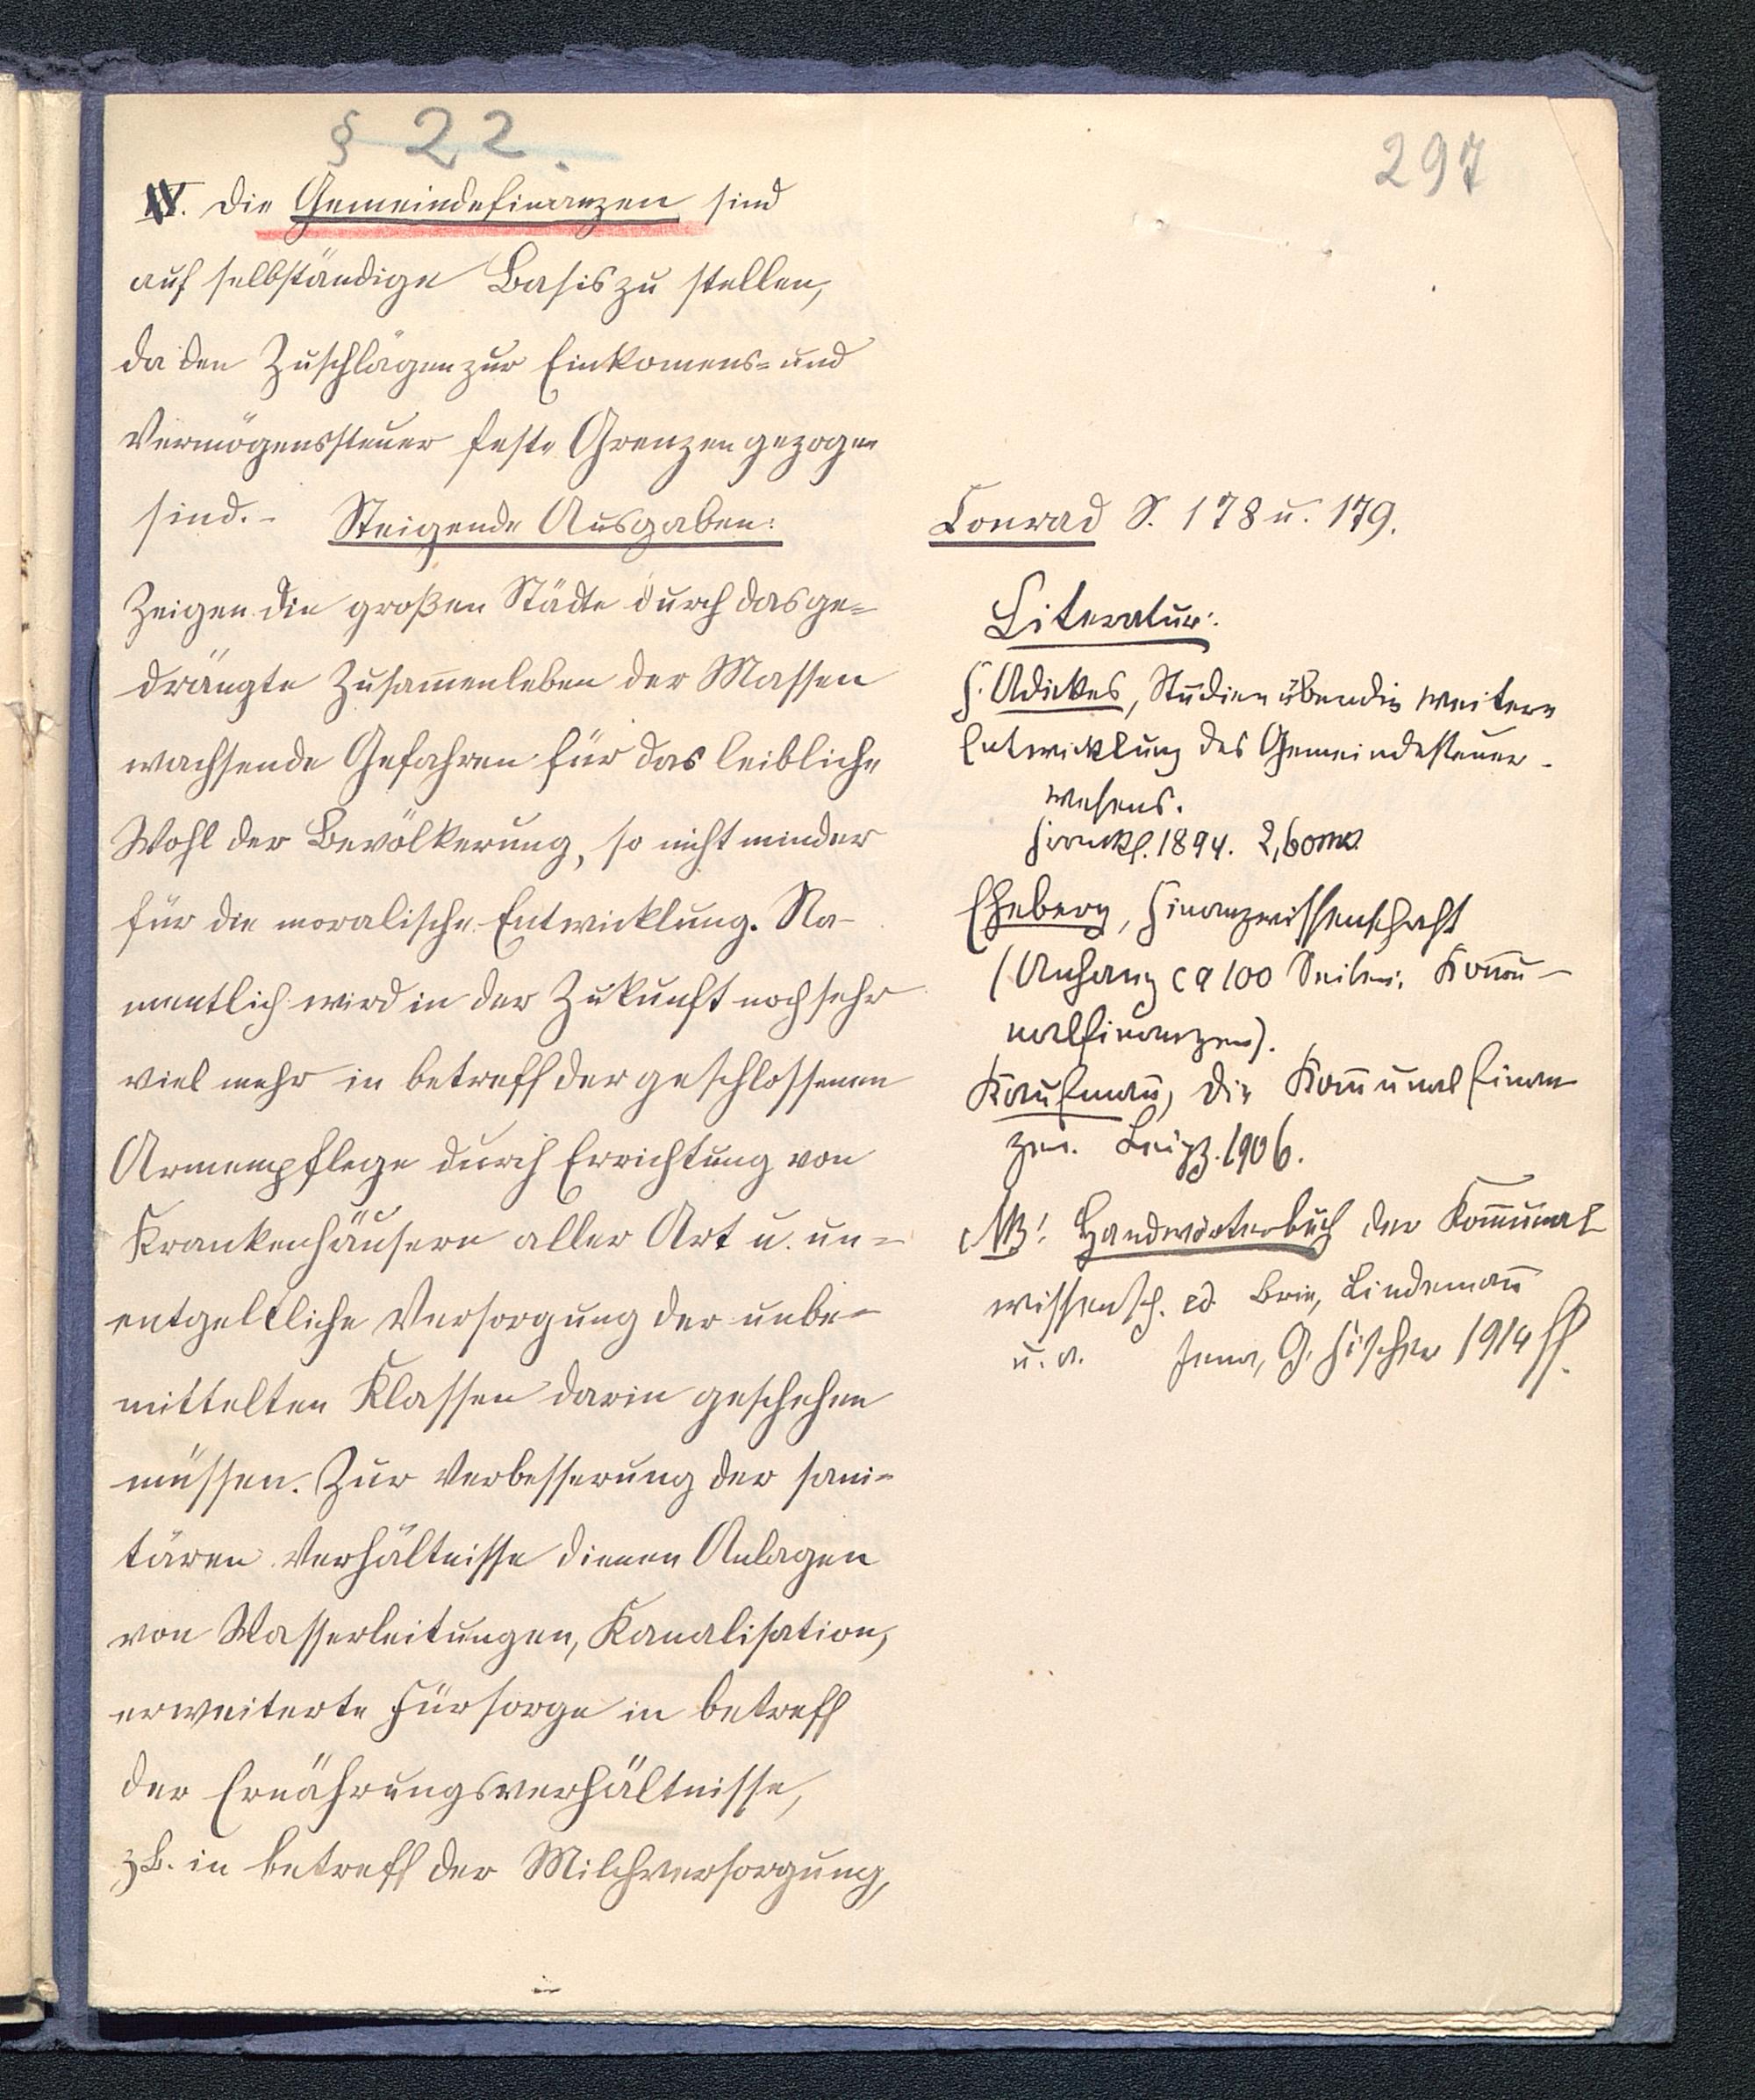 § 22.
297
IV. Die Gemeindefinanzen sind
auf selbständige Basis zu stellen,
da den Zuschlägen zur Einkom̅ens= und
Vermögenssteuer feste Grenzen gezogen
sind. - Steigende Ausgaben:
Zeigen die großen Städte durch das ge=
drängte Zusam̅enleben der Massen
wachsende Gefahren für das leibliche
Wohl der Bevölkerung, so nicht minder
für die moralische Entwicklung. Na-
mentlich wird in der Zukunft noch sehr
viel mehr in betreff der geschlossenen
Armenpflege durch Errichtung von
Krankenhäusern aller Art u. un=
entgeltliche Versorgung der unbe=
mittelten Klassen darin geschehen
müssen. Zur Verbesserung der sani=
tären Verhältnisse dienen Anlagen
von Wasserleitungen, Kanalisation,
erweiterte Fürsorge in betreff
der Ernährungsverhältnisse,
z.B. in betreff der Milchversorgung,
Conrad S. 178 u. 179.
Literatur:
F. Adickes, Studien über die weitere
Entwicklung des Gemeindesteuer-
wesens.
Frankf. 1894. 2,60 M.
Eheberg, Finanzwissenschaft
(Anhang ca 100 Seiten: Kom̅u-
nalfinanzen).
Kaufman̅, Die Kom̅unalfinan
zen. Leipz. 1906.
NB! Handwörterbuch der Kom̅unal
wissensch. ed Brix, Lindeman̅
u. a. Jena, G. Fischer 1914 ff.